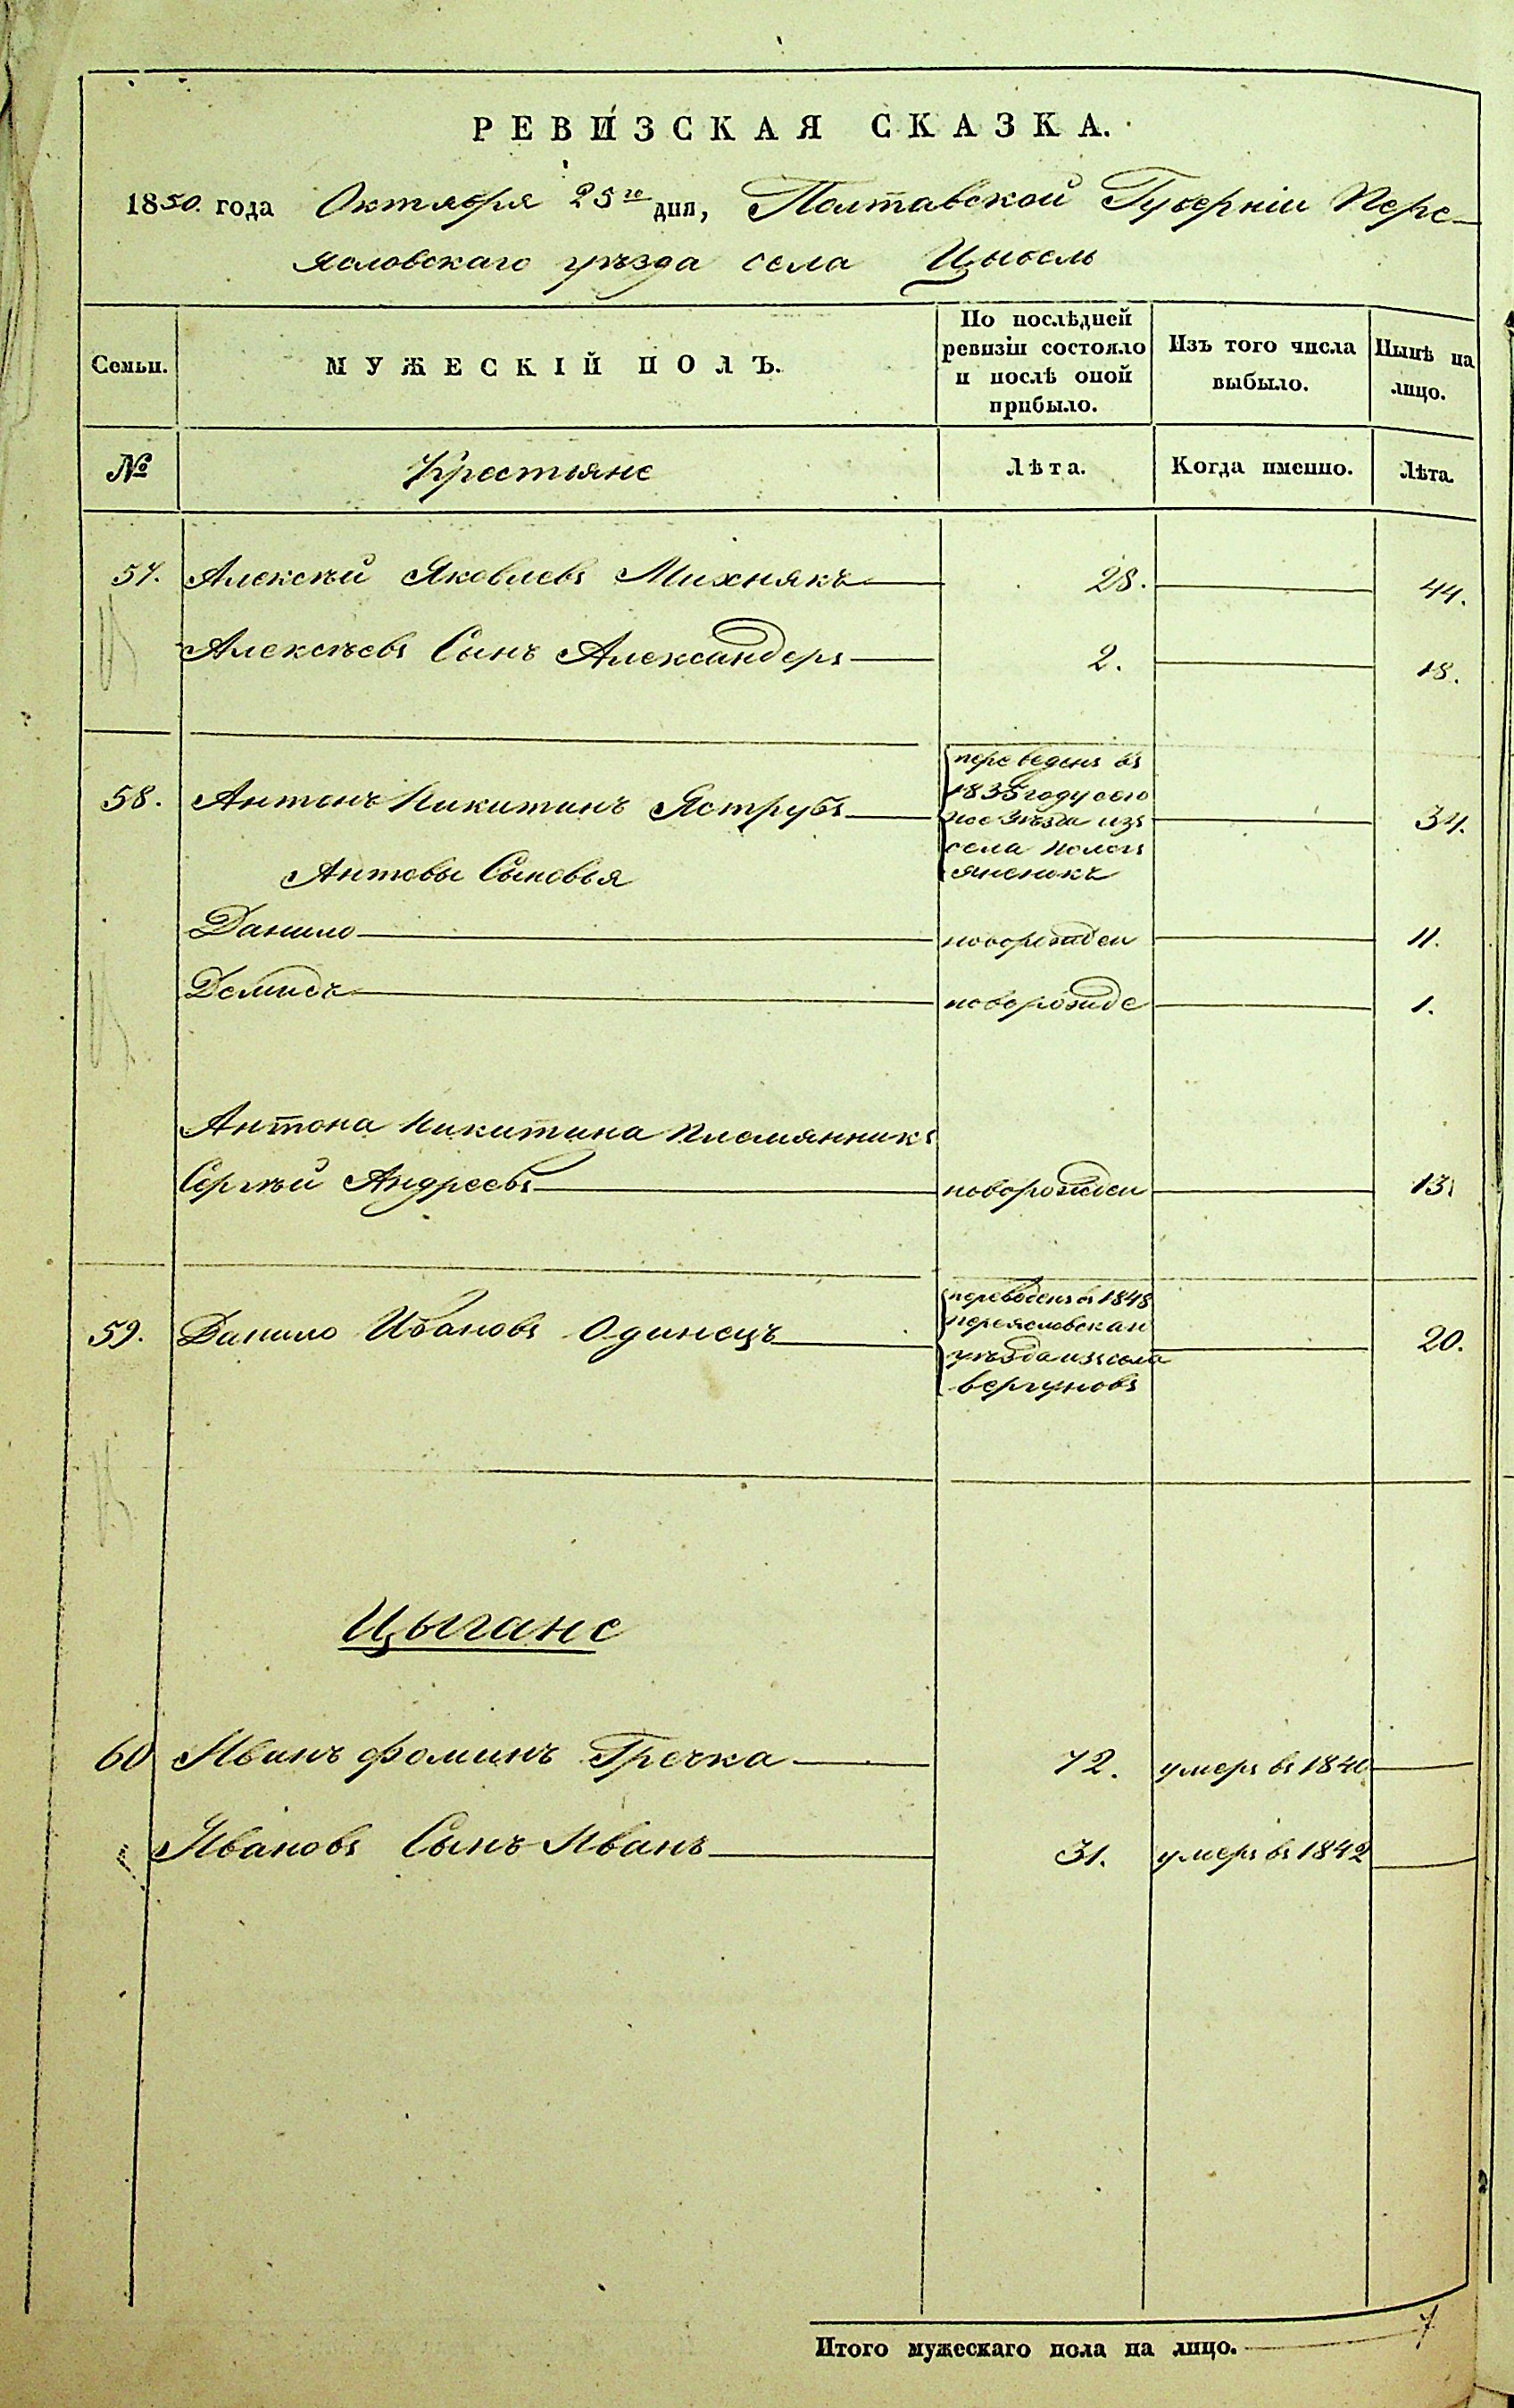 РЕВИЗСКАЯ СКАЗКА.
1850. года Октября 25го дня, Полтавской Губерніи Пере-
яславскаго уѣзда села Цыбель
Семьи. МУЖЕСКІЙ ПОЛЪ. По послѣдней ревизіи состояло и послѣ оной прибыло. Изъ того числа выбыло. Нынѣ на лицо.
№ Крестьяне Лѣта. Когда именно. Лѣта.
57. Алексѣй Яковлевъ Михнякъ 28. 44.
Алексѣевъ Сынъ Александеръ 2. 18.
58. Антонъ Никитинъ Яструбъ переведенъ въ 34.
1835 году сего
уѣзда изъ
села
Антовы Сыновья
Данило новорожден 11.
Демидъ новорожде 1.
Антона Никитина Племянникъ
Сергѣй Андреевъ новорожден 13
59. Данило Ивановъ Одинецъ переведенъ в 1848 20.
переясловскаго
уѣзда изъ села
Вергуновъ
Цыгане
60 Иванъ Фоминъ Гречка 72. умеръ въ 1840
Ивановъ Сынъ Иванъ 31. умеръ въ 1842
Итого мужескаго пола на лицо. 7